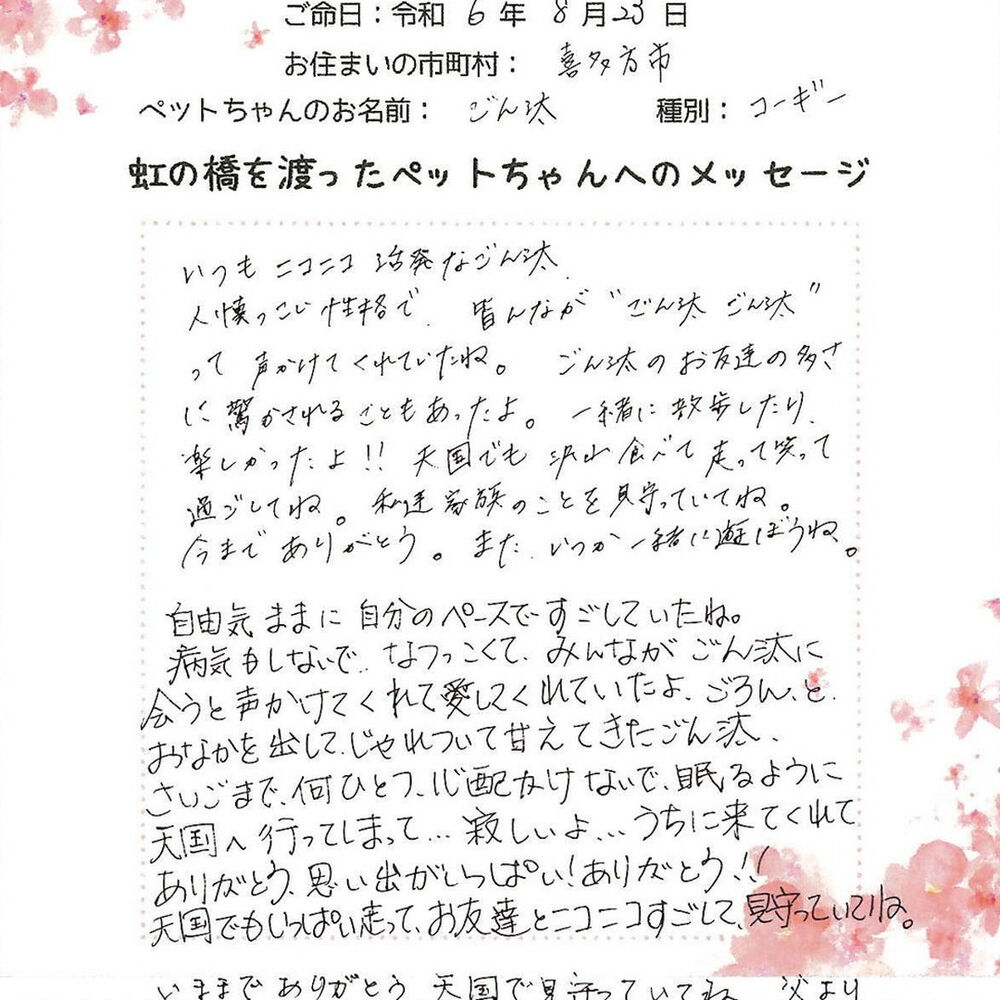 ご命日：令和 6 年 8 月 23 日
お住まいの市町村： 喜多方市
ペットちゃんのお名前： ごん汰 種別： コーギー
虹の橋を渡ったペットちゃんへのメッセージ
いつも ニコニコ 活発なごん汰、
人懐っこい性格で、皆んなが “ごん汰 ごん汰”
って 声かけてくれていたね。 ごん汰のお友達の多さ
に 驚かされることもあったよ。 一緒に散歩したり、
楽しかったよ!! 天国でも 沢山食べて 走って笑って
過ごしてね。 私達家族のことを見守っていてね。
今まで ありがとう。また、いつか一緒に遊ぼうね。
自由気ままに 自分のペースですごしていたね。
病気もしないで、なつっこくて、みんなが ごん汰に
会うと声かけてくれて愛してくれていたよ、ごろん、と、
おなかを出して、じゃれついて甘えてきたごん汰、
さいごまで、何ひとつ、心配かけないで、眠るように
天国へ行ってしまって… 寂しいよ… うちに来てくれて
ありがとう、思い出がいっぱい！ありがとう!!
天国でもいっぱい走って、お友達とニコニコすごして、見守っていてね。
いままで ありがとう 天国で見守っていてね 父より